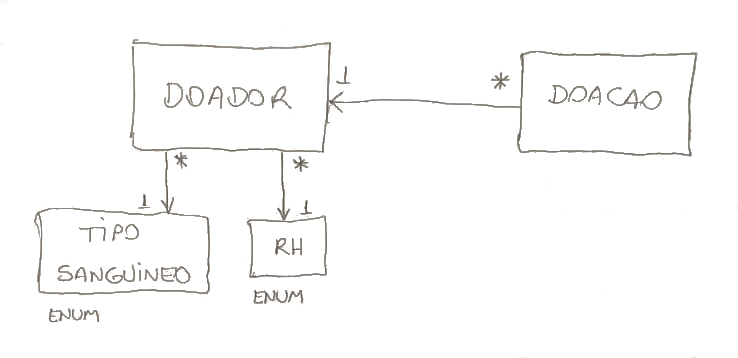 DOADOR
1
*
DOACAO
*
*
1
1
TIPO
SANGUINEO
RH
ENUM
ENUM